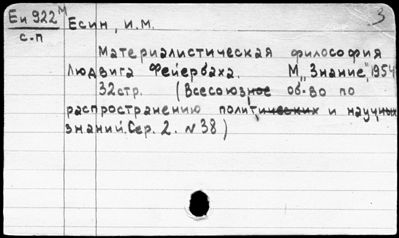 Еи 922м Есин, И.М. 3
с.п
Материалистическая философия
Людвига Фейербаха. М., "Знание", 1954
32стр. (Всесоюзное об-во по
распространению политических и научных
знаний. Сер. 2. №38)